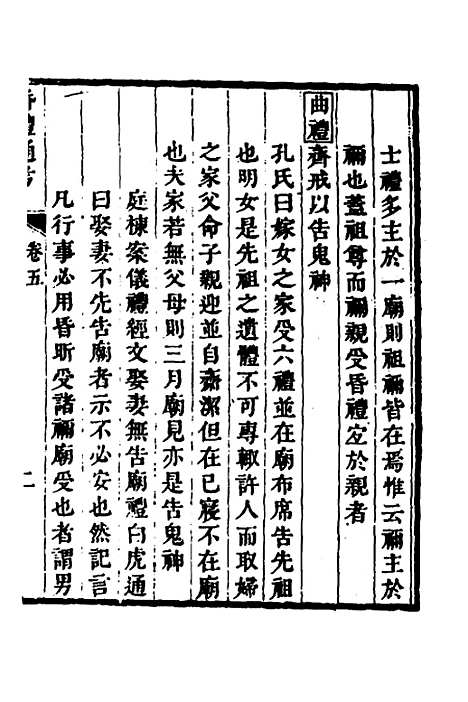 士禮多主於一廟則祖禰皆在焉惟云禰主於
禰也蓋祖尊而禰親受昏禮宜於親者
曲禮齊戒以告鬼神
孔氏曰嫁女之家受六禮並在廟布席告先祖
也明女是先祖之遺體不可專輒許人而取婦
之家父命子親迎並自齋潔但在己寢不在廟
也夫家若無父母則三月廟見亦是告鬼神
庭棟案儀禮經文娶妻無告廟禮白虎通
曰娶妻不先告廟者示不必安也然記言
凡行事必用昏昕受諸禰廟受也者謂男
昏禮通考
卷五
二